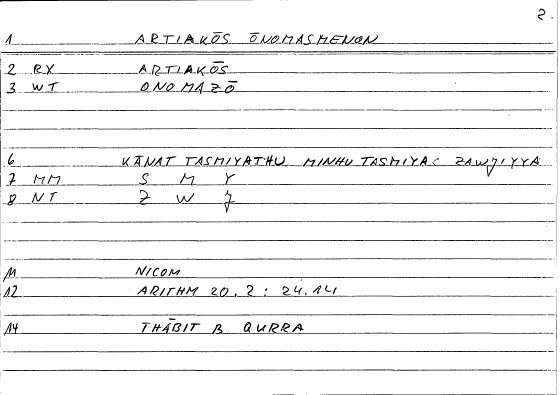 2.
1 ARTIAKŌS ŌNOMASMENON
2 RX ARTIAKŌS
3 WT ONOMAZŌ
6 KĀNAT TASMIYATHU MINHU TASMIYAC ZAWJIYYA
7 MM S M Y
8 NT Z W J
11 NICOM
12 ARITHM 20.2 : 24.14
14 THĀBIT B QURRA